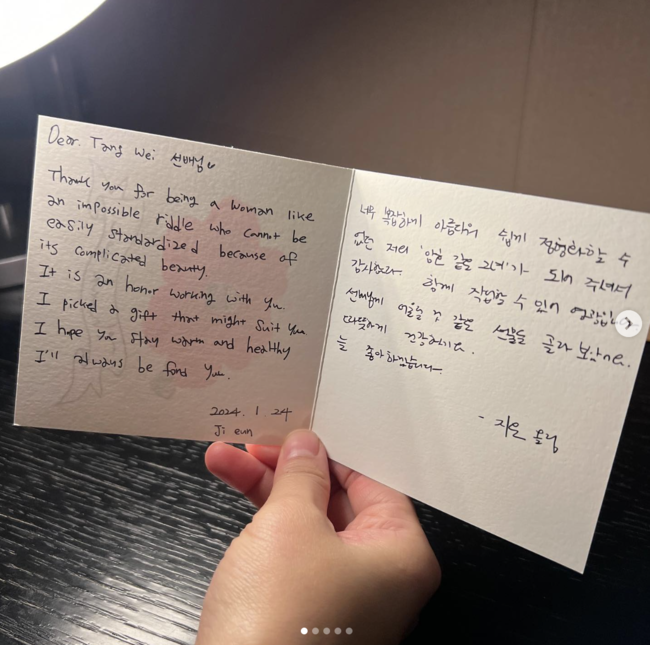 Dear. Tang Wei 선배님
Thank you for being a woman like
an impossible riddle who cannot be
easily standardized because of
its complicated beauty.
It is an honor working with you.
I picked a gift that might suit you
I hope you stay warm and healthy
I'll always be fond you.
2024. 1 24
Ji eun
너무 복잡하게 아름다워 쉽게 정형화할 수
없는 저의 '암호 같은 그녀'가 되어 주셔서
감사해요 함께 작업할 수 있어 영광입
선배님께 어울릴 것 같은 선물을 골라 보았어요.
따뜻하게 건강하시고.
늘 좋아하겠습니다.
- 지은 올림